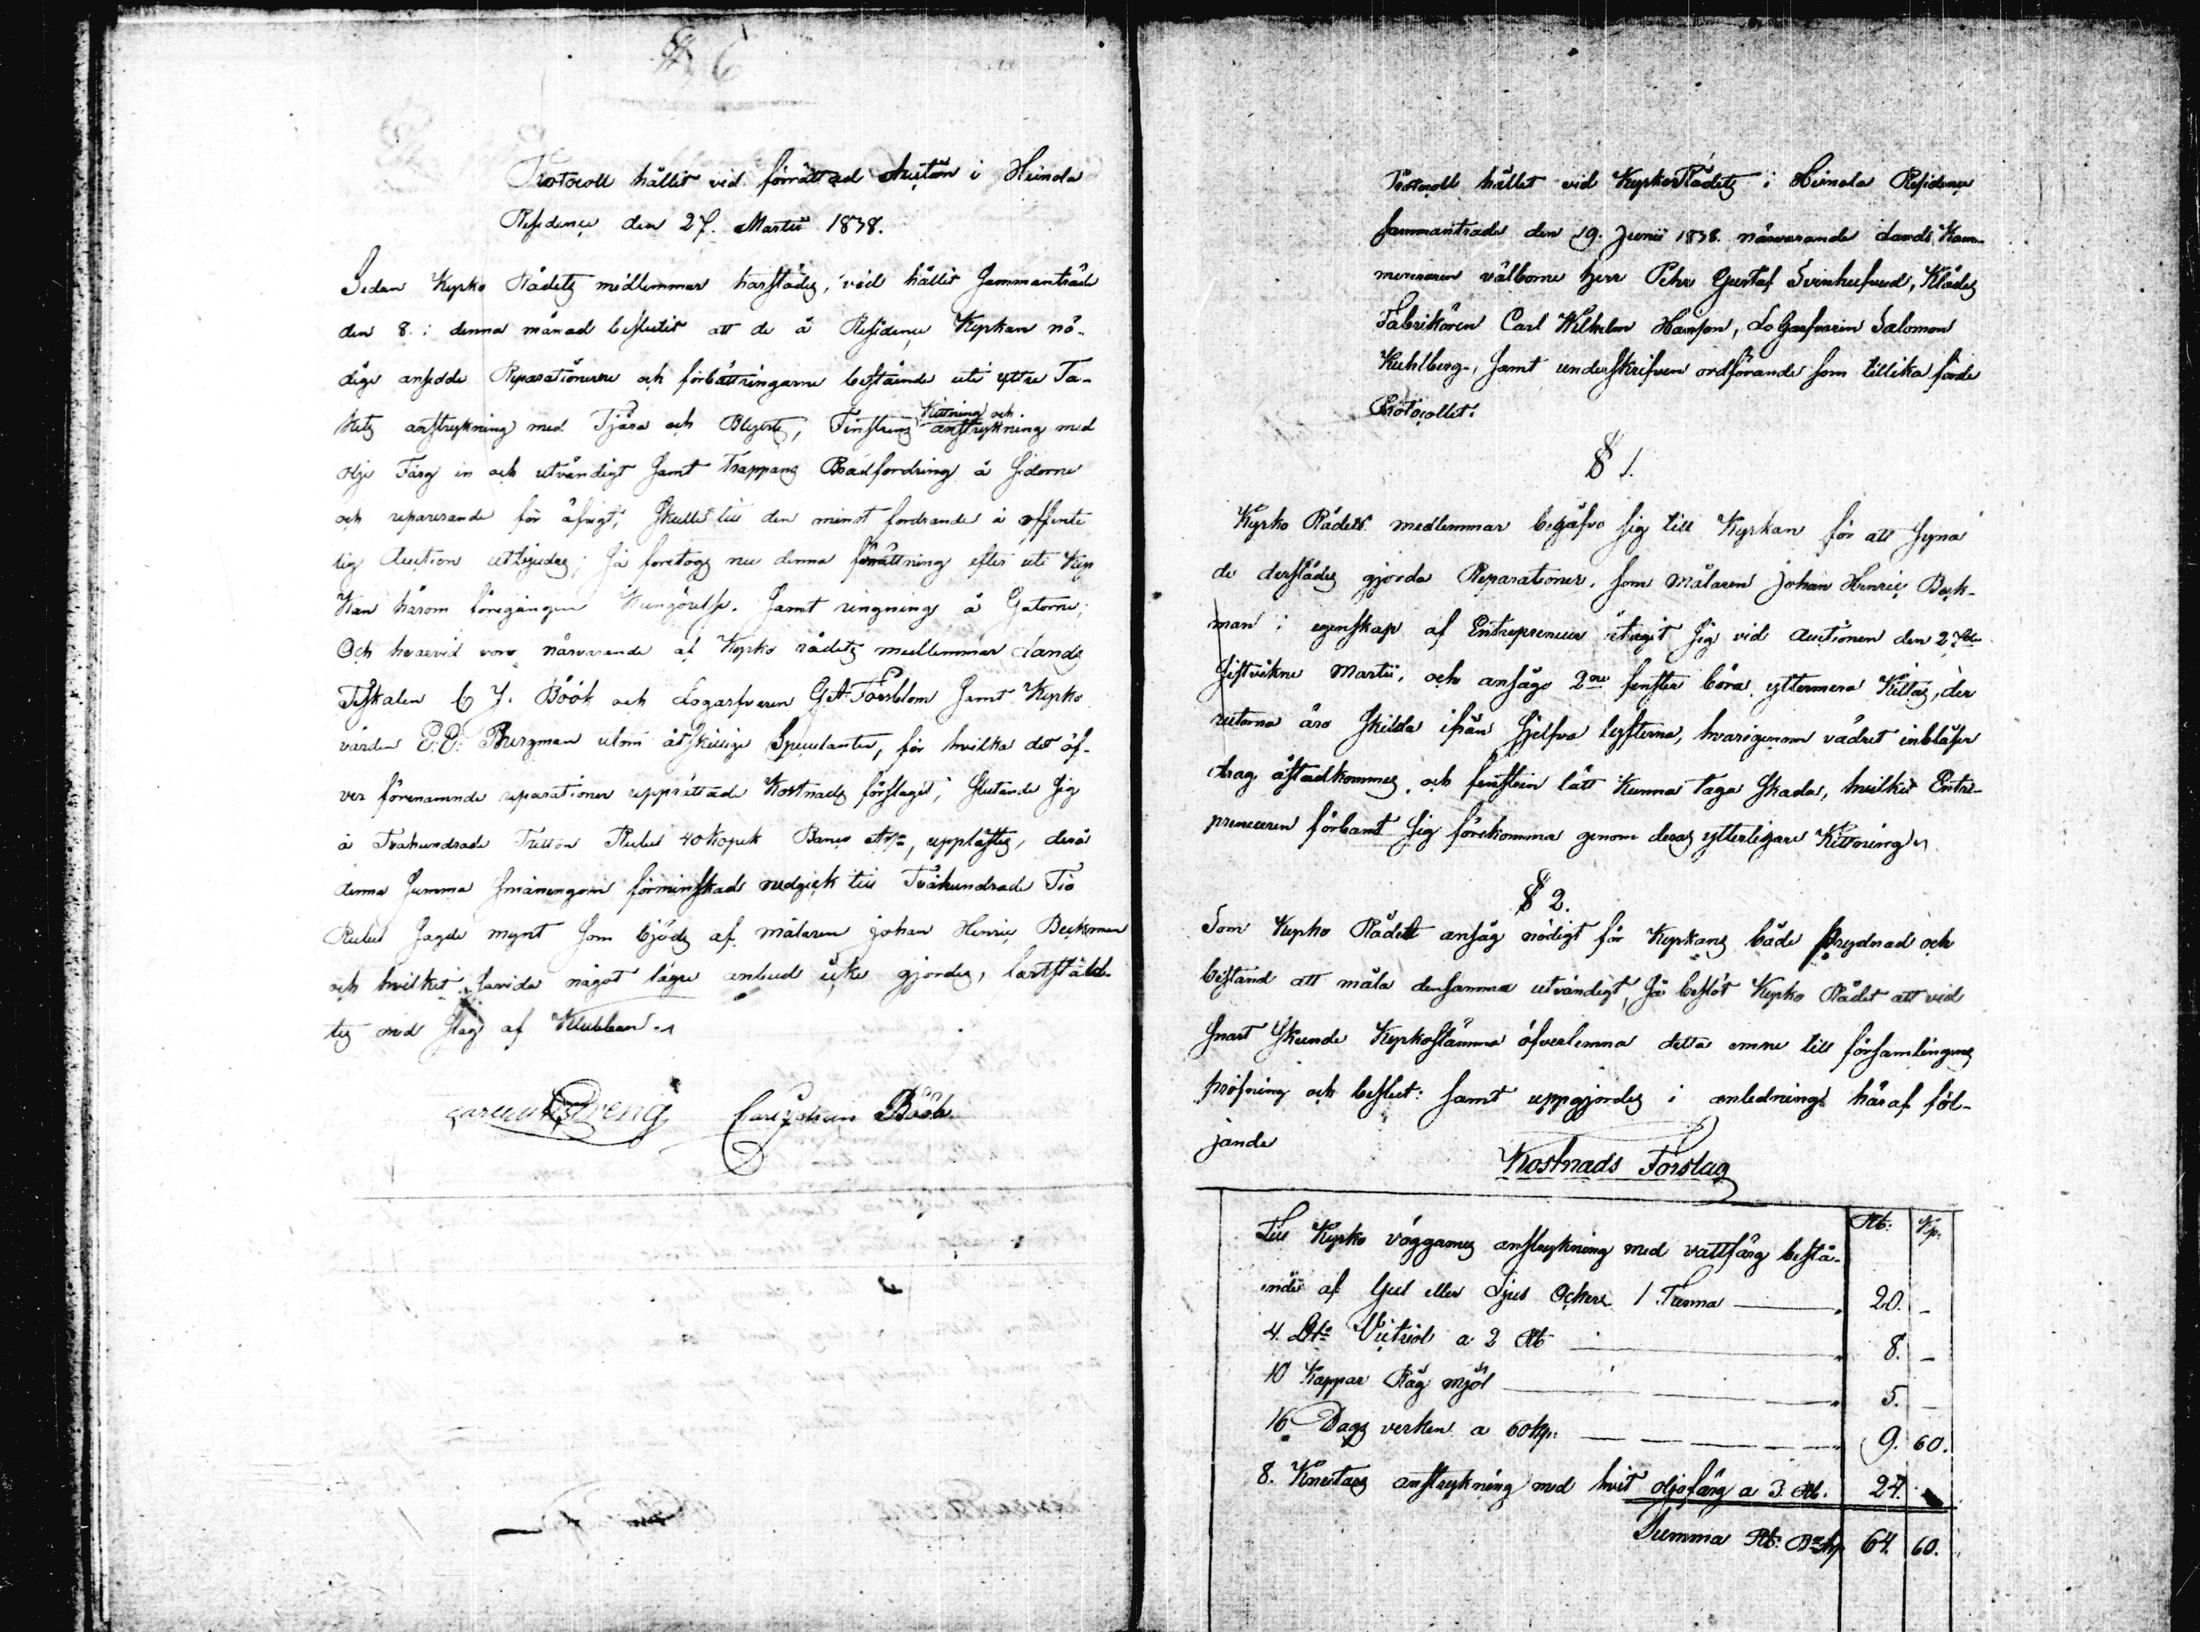 Protocoll hållit vid förrättad Auction i Heinola
Residence den 27. Martii 1838.
Sedan Kyrko Rådets medlemmar härstädes, vid hållit Sammanträde
den 8. i denna månad beslutit att de å Residence Kyrkan nö-
dige ansedde Reparationerne och förbättringarne bestående uti yttre Ta-
kets anstrykning med Tjära och Blyerts, Fönstrens Kittning och anstrykning med
olje Färg in och utvändigt samt Trappans Brädfordring å sidorne
och reparerande för öfrigt, skulle till den minst fordrande å offente
lig Auction utbjudas; Så företogs nu denna förrättning efter uti Kyr
kan härom föregången Kungörelse. Samt ringning å Gatorne;
Och hvarvid voro närvarande af Kyrko rådets medlemmar Lands
Fiskalen C J. Böök och Logarfvaren G A Forsblom Samt Kyrko
värden Bergman utom åtskillige Speculanter, för hvilka det öf-
ver förenämnde reparationer upprättade Kostnads förslaget, slutande sig
å Tvåhundrade Tretton Rubel 40 Kopek Banco Ass:, upplästes, derå
denna Summa småningom förminskad nedgick till Tvåhundrade Tio
Rubel sagde mynt som bjöds af målaren Johan Henric Beckman
och hvilket, såvida något lägre anbud icke gjordes, fastställ-
tes med slag af Klubban.
Carl Johan Böök.
Protocoll hållet vid Kyrko Rådets i Heinola Residence
sammanträde den 19. Junii 1838. närvarande Lands Kam-
mereraren välborne Herr Pehr Gustaf Svinhufvud, Klädes
Fabrikören Carl Wilhelm Hanson, Logarfvarin Salomon
Kuhlberg, samt underskrifven ordförande som tillika förde
Protocollet.
§ 1.
Kyrko Rådets medlemmar begåfvo sig till Kyrkan för att syna
de derstädes gjorda Reparationer, som Målaren Johan Henric Beck-
man i egenskap af Entrepreneur åtagit sig vid Auctionen den 27de
sistvikne Martii, och ansågo 2ne fenster böra yttermera Kittas, der
rutorna äro skilda ifrån sjelfva lysterna, hvarigenom vädret inblåser
drag åstadkommes, och fenstren lätt kunna taga skada, hvilket Entre-
preneuren förband sig förekomma genom deras ytterligare Kittning
§ 2.
Som Kyrko Rådet ansåg nödigt för Kyrkans både prydnad och
bestånd att måla densamma utvändigt, Så beslöt Kyrko Rådet att vid
snart skeende Kyrkostämma öfverlemna detta ämne till församlingens
pröfning och beslut: samt uppgjordes i anledning häraf föl-
jande
Kostnads Förslag
Rb: Kp:
Till Kyrko väggarnes anstrykning med vattfärg bestå-
ende af Gul eller Ljus Ockera 1 Tunna 20. –
4. Victriol a 2 Rb 8. –
10 Kappar Råg mjöl 5. –
16 Dags verken a 60 Kp: 9. 60.
8. Knutars anstrykning med hvit oljefärg a 3 Rb. 24.
Summa Rb: 64. 60.